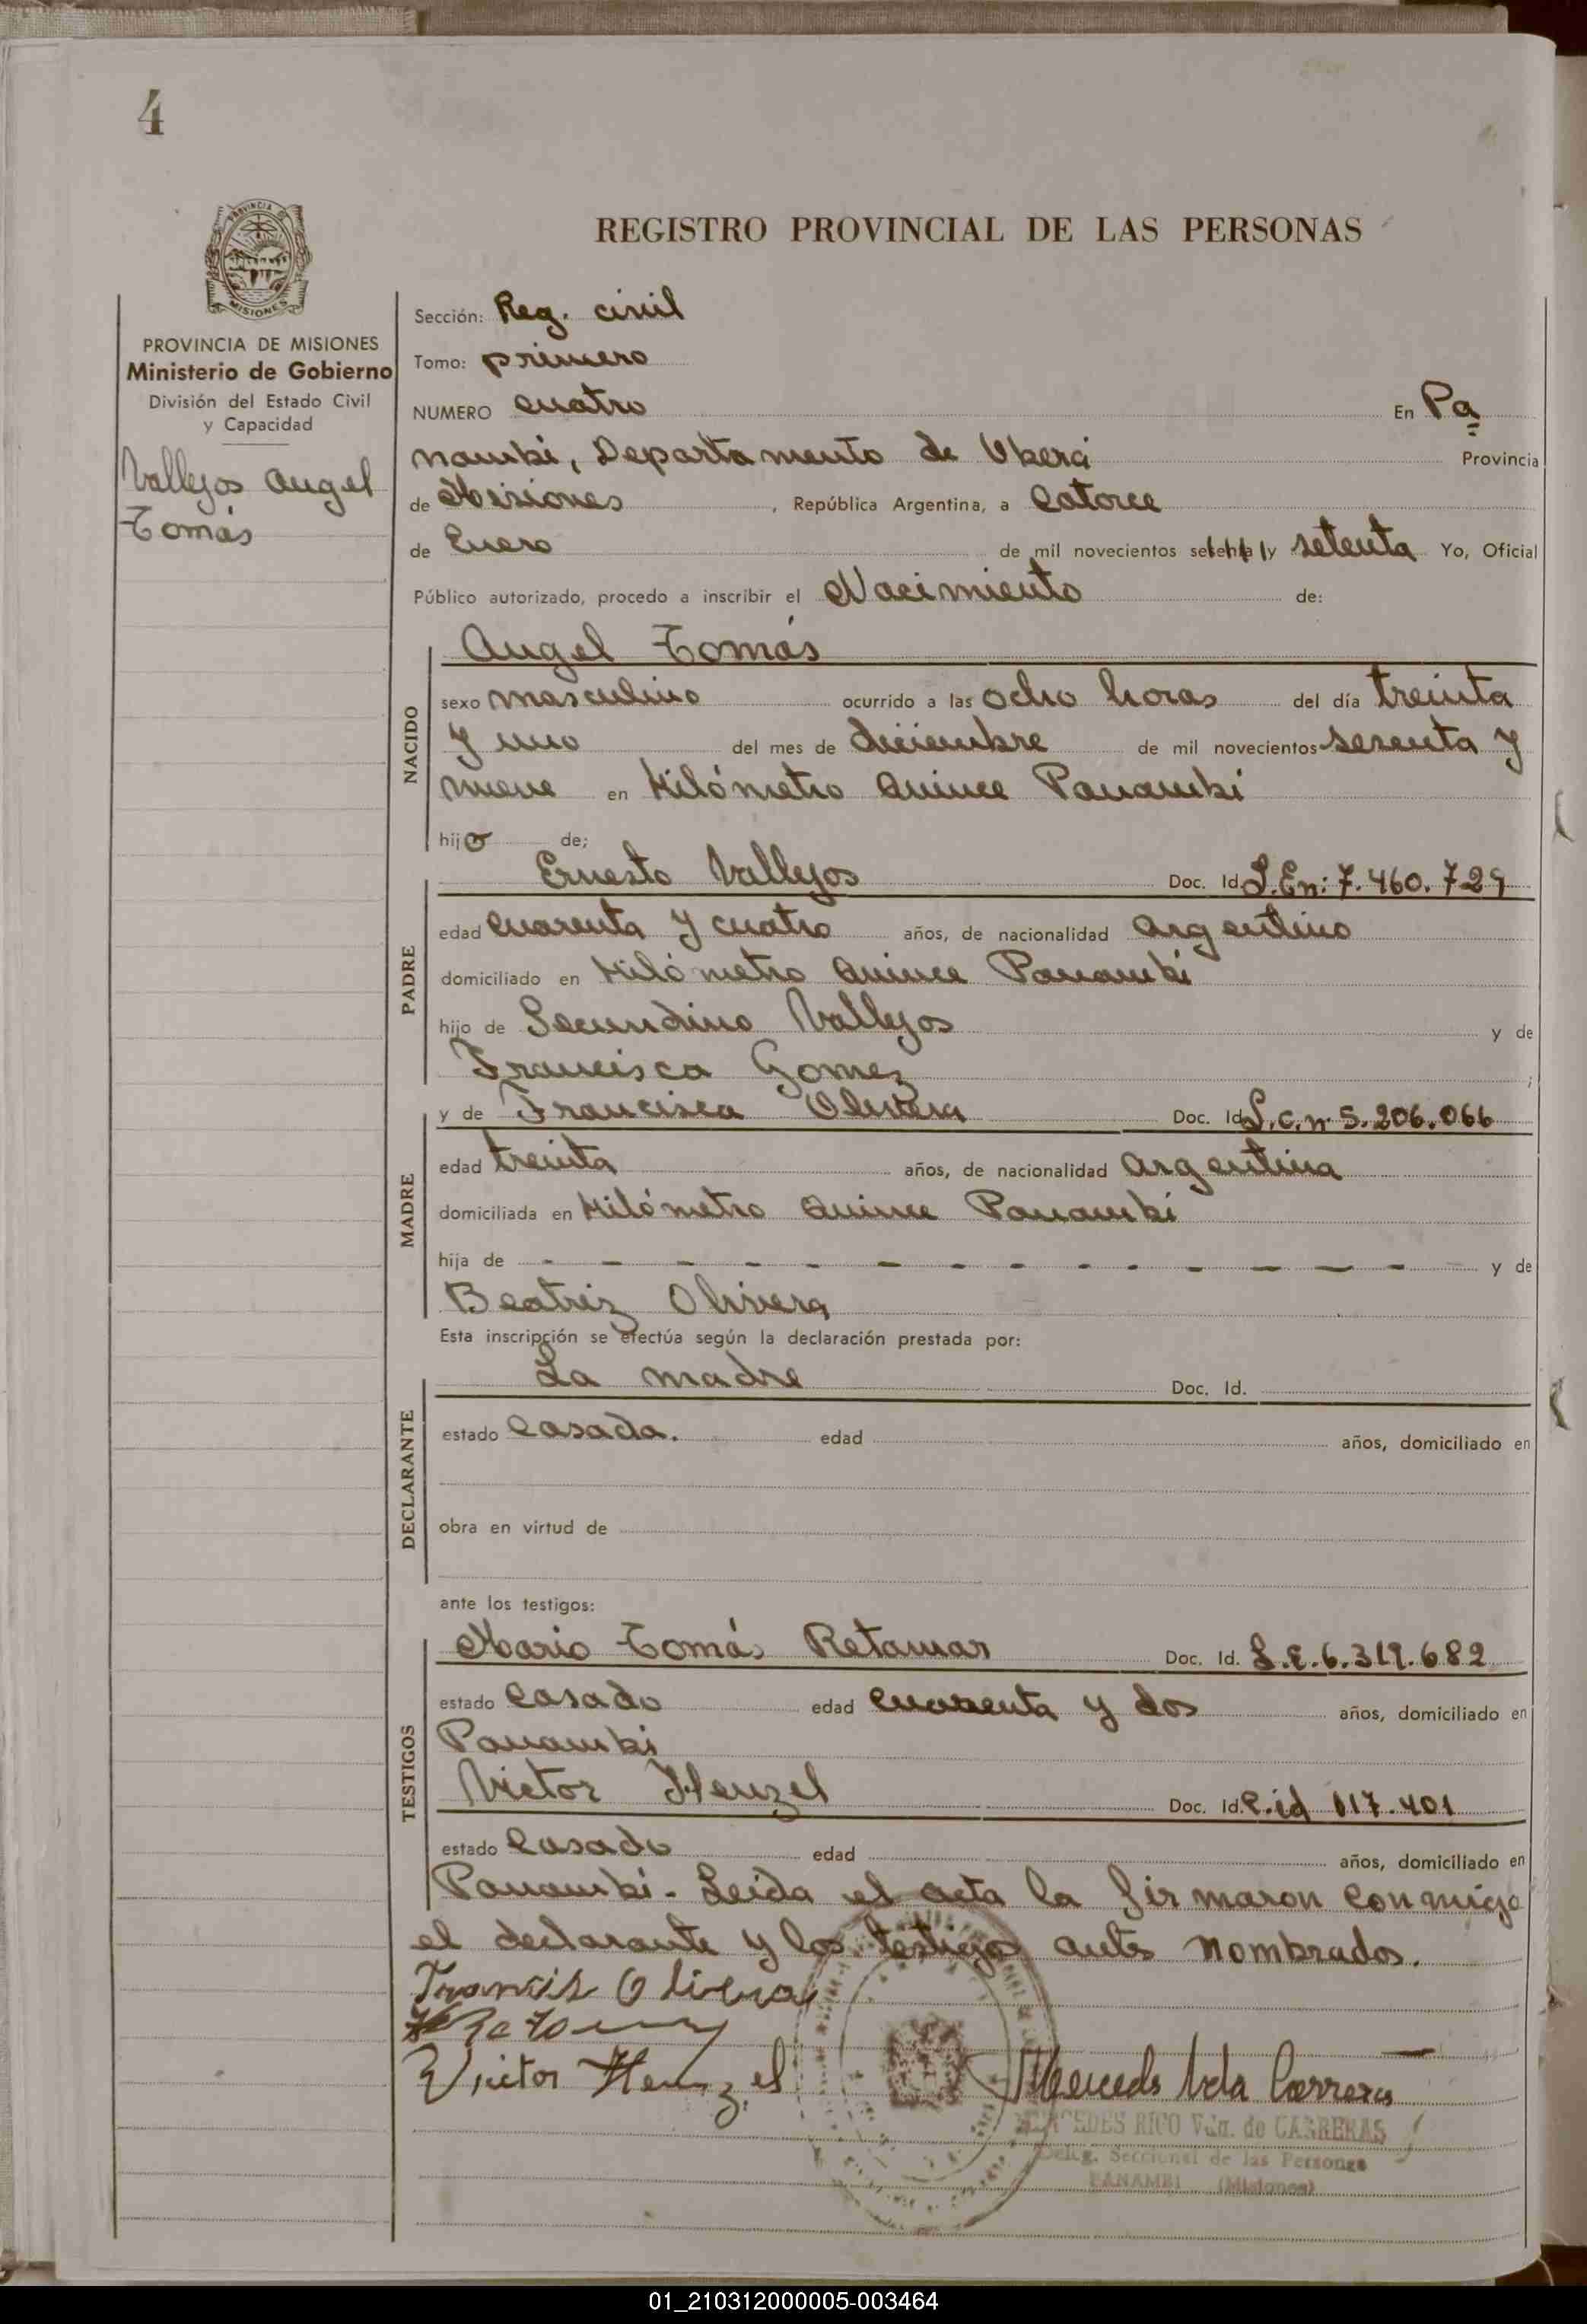 4
PROVINCIA DE
MISIONES
PROVINCIA DE MISIONES
Ministerio de Gobierno
División del Estado Civil
y Capacidad
Vallejos Angel
Tomás
REGISTRO PROVINCIAL DE LAS PERSONAS
Sección: Reg. civil
Tomo: primero
NUMERO cuatro En Pa
nambi, Departamento de Oberá Provincia
de Misiones, República Argentina, a Catorce
de Enero de mil novecientos setenta y setenta Yo, Oficial
Público autorizado, procedo a inscribir el Nacimiento de:
NACIDO
Angel Tomás
sexo masculino ocurrido a las ocho horas del día treinta
y uno del mes de diciembre de mil novecientos sesenta y
nueve en Kilómetro Quince Panambi
hijo de;
PADRE
Ernesto Vallejos Doc. Id. L.En: 7.460.729
edad cuarenta y cuatro años, de nacionalidad argentino
domiciliado en Kilómetro Quince Panambi
hijo de Secundino Vallejos y de
Francisca Gomez ;
MADRE
y de Francisca Olivera Doc. Id. L.C. nº 5.206.066
edad treinta años, de nacionalidad argentina
domiciliada en Kilómetro Quince Panambi
hija de - - - - - - - - - - - - - y de
Beatriz Olivera
Esta inscripción se efectúa según la declaración prestada por:
DECLARANTE
La madre Doc. Id.
estado Casada. edad años, domiciliado en
obra en virtud de
ante los testigos:
TESTIGOS
Mario Tomás Retamar Doc. Id. L.E. 6.319.682
estado Casado edad cuarenta y dos años, domiciliado en
Panambi
Victor Henzel Doc. Id. C.id 117.401
estado Casado edad años, domiciliado en
Panambi - Leida el acta la firmaron conmigo
el declarante y los testigos antes nombrados.
Francis Olivera
Victor Henzel
Mercedes Vda Carreras
MERCEDES RICO Vda. de CARRERAS
Deleg. Seccional de las Personas
PANAMBI (Misiones)
01_210312000005-003464